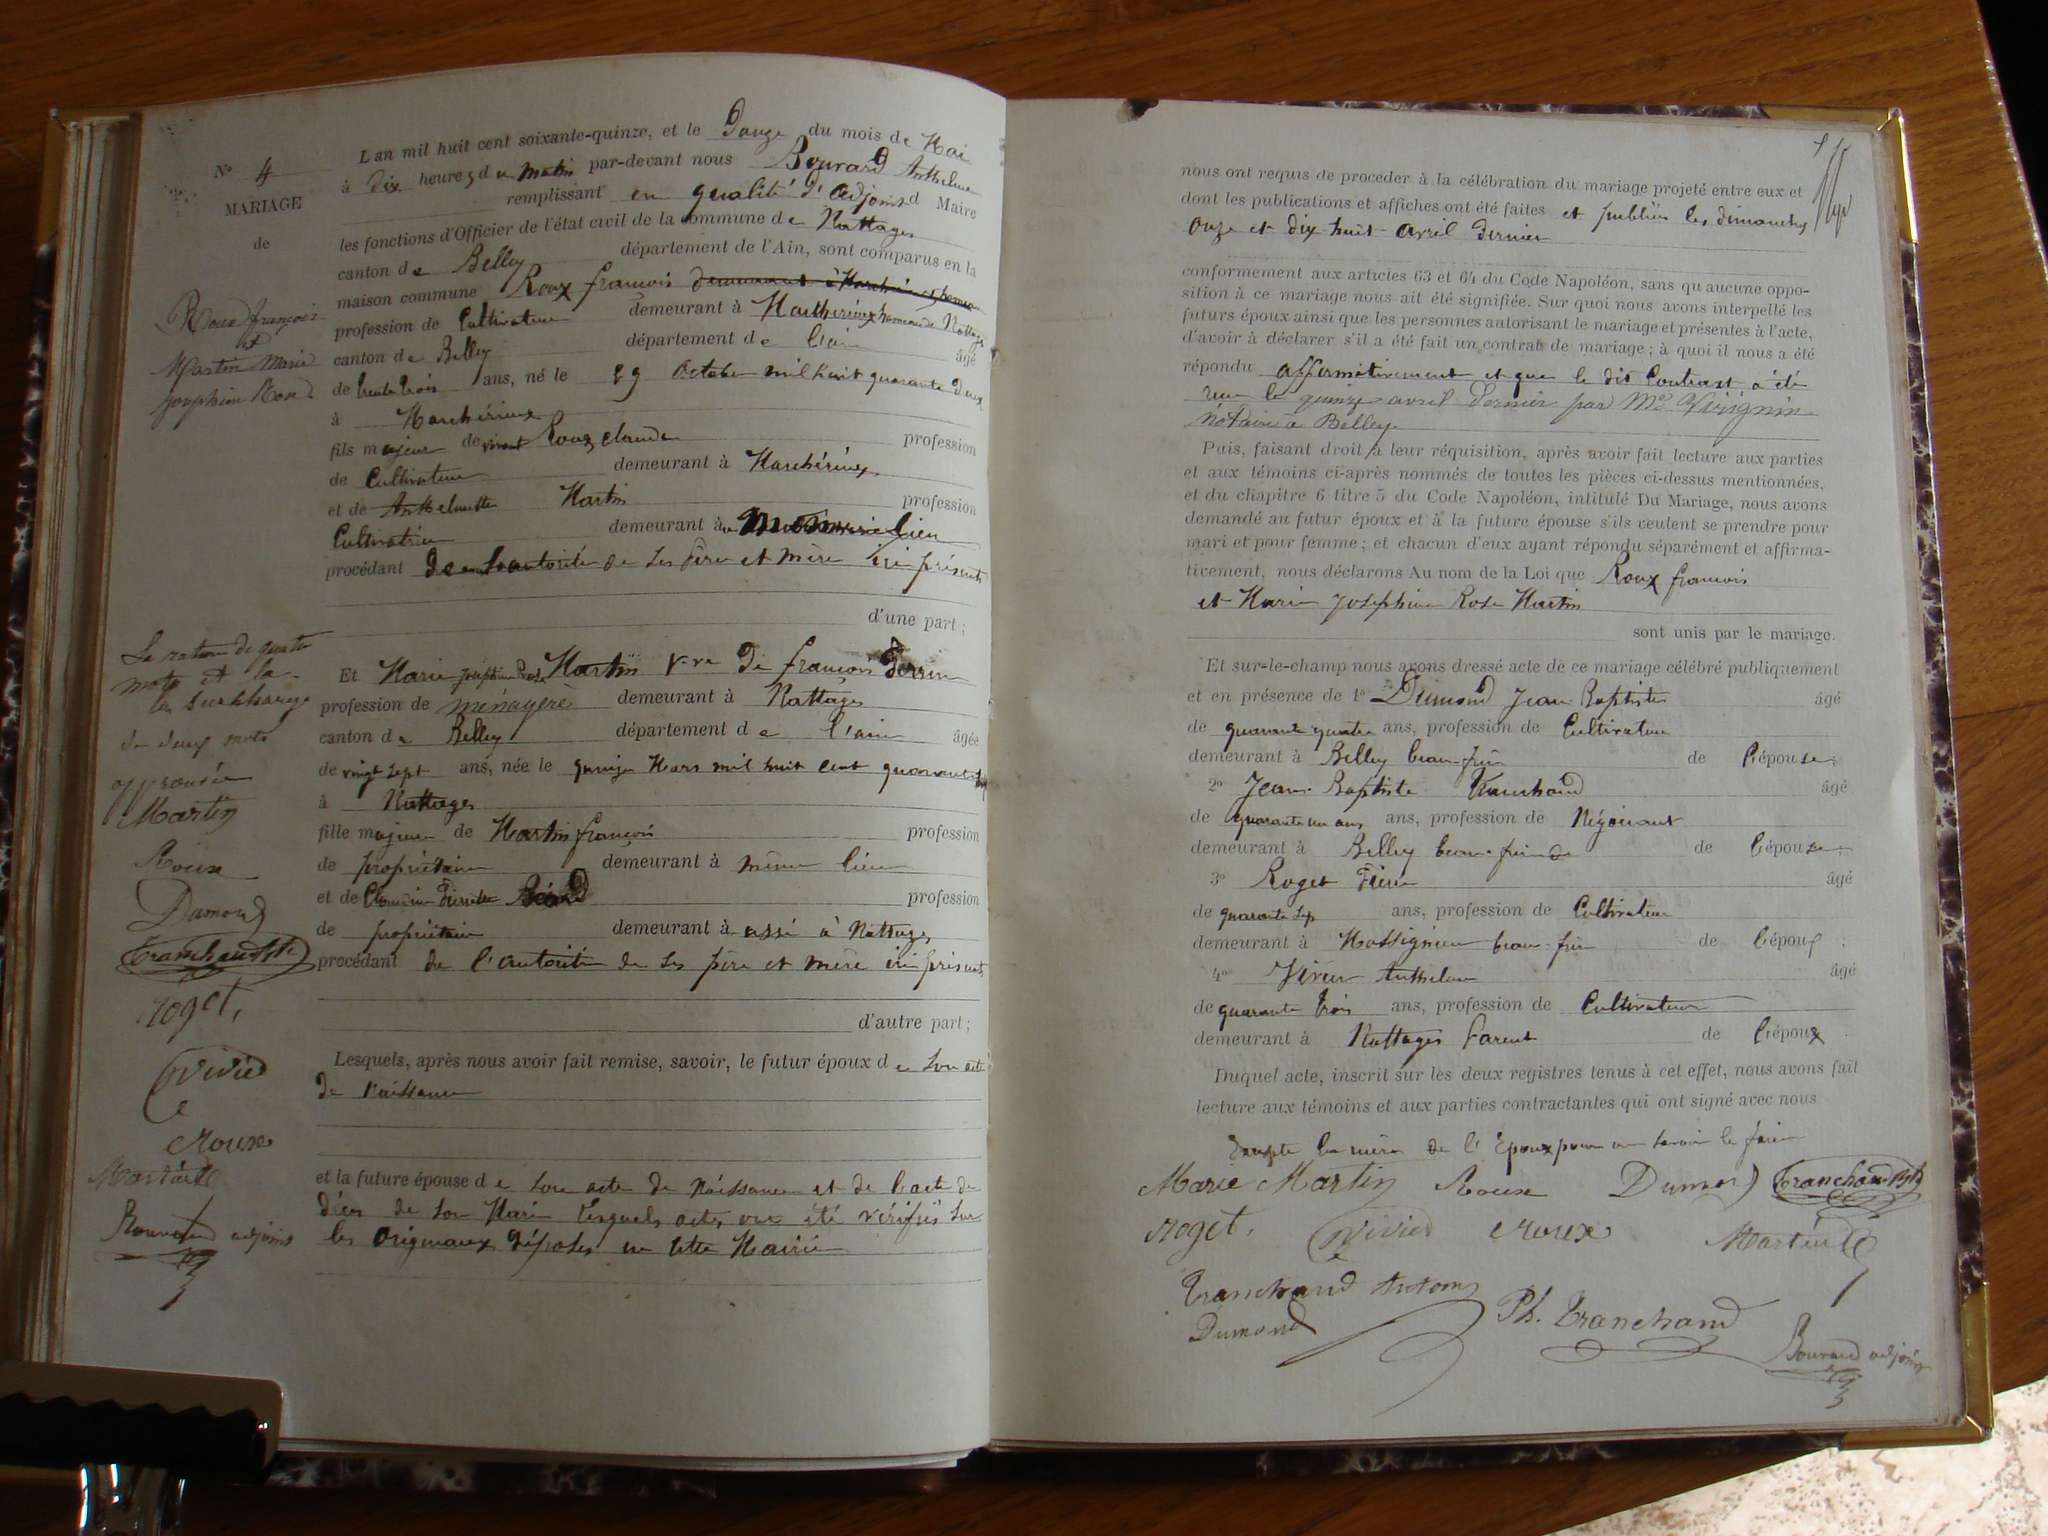 Nº 4
MARIAGE
de
Roux françois
et
Martin Marie
Josephine Rose
L'an mil huit cent soixante-quinze, et le Douze du mois de Mai
à dix heures du matin par-devant nous Bouvard Anthelme
remplissant en qualité d'adjoint Maire
les fonctions d'Officier de l'état civil de la commune de Nattages
canton de Belley département de l'Ain, sont comparus en la
maison commune Roux françois demeurant à
profession de Cultivateur demeurant à hameau de Nattages
canton de Belley département de l'ain âgé
de trente trois ans, né le 29 octobre mil huit quarante deux
à
fils majeur de vivant Roux claude profession
de Cultivateur demeurant à
et de Anthelmette Martin profession
Cultivatrice demeurant à lieu
procédant de l'autorité de ses père et mère ici présents
d'une part ;
La rature de quatre
mots et la
surcharge
de deux mots
approuvée
Martin
Roux
Dumond
Tranchand
roget,
Vivié
roux
Martin
Bouvard adjoint
Et Marie josephine Rose Martin Vve de françois Perrin
profession de ménagère demeurant à Nattages
canton de Belley département de l'ain âgée
de vingt sept ans, née le quinze Mars mil huit cent quarante
à Nattages
fille majeure de Martin françois profession
de propriétaire demeurant à même lieu
et de profession
de propriétaire demeurant à aussi à Nattages
procédant de l'autorité de ses père et mère ici présents
d'autre part ;
Lesquels, après nous avoir fait remise, savoir, le futur époux de son acte
de naissance
et la future épouse de son acte de Naissance et de l'acte de
décès de son Mari lesquels actes ont été vérifiés sur
les originaux déposés en cette Mairie
nous ont requis de proceder à la célébration du mariage projeté entre eux et
dont les publications et affiches ont été faites et publiées les dimanches
onze et dix-huit avril dernier
conformement aux articles 63 et 64 du Code Napoléon, sans qu'aucune oppo-
sition à ce mariage nous ait été signifiée. Sur quoi nous avons interpellé les
futurs époux ainsi que les personnes autorisant le mariage et présentes à l'acte,
d'avoir à déclarer s'il a été fait un contrat de mariage ; à quoi il nous a été
répondu affirmativement et que le dit Contrat a été
reçu le quinze avril dernier par Me
notaire à Belley
Puis, faisant droit à leur réquisition, après avoir fait lecture aux parties
et aux témoins ci-après nommés de toutes les pièces ci-dessus mentionnées,
et du chapitre 6 titre 5 du Code Napoléon, intitulé Du Mariage, nous avons
demandé au futur époux et à la future épouse s'ils veulent se prendre pour
mari et pour femme ; et chacun d'eux ayant répondu séparément et affirma-
tivement, nous déclarons Au nom de la Loi que Roux françois
et Marie Josephine Rose Martin
sont unis par le mariage.
Et sur-le-champ nous avons dressé acte de ce mariage célébré publiquement
et en présence de 1º Dumond Jean Baptiste âgé
de quarante quatre ans, profession de Cultivateur
demeurant à Belley beau-frère de l'épouse ;
2º Jean Baptiste Tranchand âgé
de quarante un ans ans, profession de Négociant
demeurant à Belley beau-frère de de l'épouse ;
3º Roget Pierre âgé
de quarante sept ans, profession de Cultivateur
demeurant à Massignieu beau-frère de l'époux ;
4º Anthelme âgé
de quarante trois ans, profession de Cultivateur
demeurant à Nattages parent de l'époux
Duquel acte, inscrit sur les deux registres tenus à cet effet, nous avons fait
lecture aux témoins et aux parties contractantes qui ont signé avec nous
Excepté la mère de l'Epoux pour ne savoir le faire
Marie Martin Roux Dumond Tranchand
roget, Vivié roux Martin
Tranchand Antony
Dumond Ph. Tranchand
Bouvard adjoint